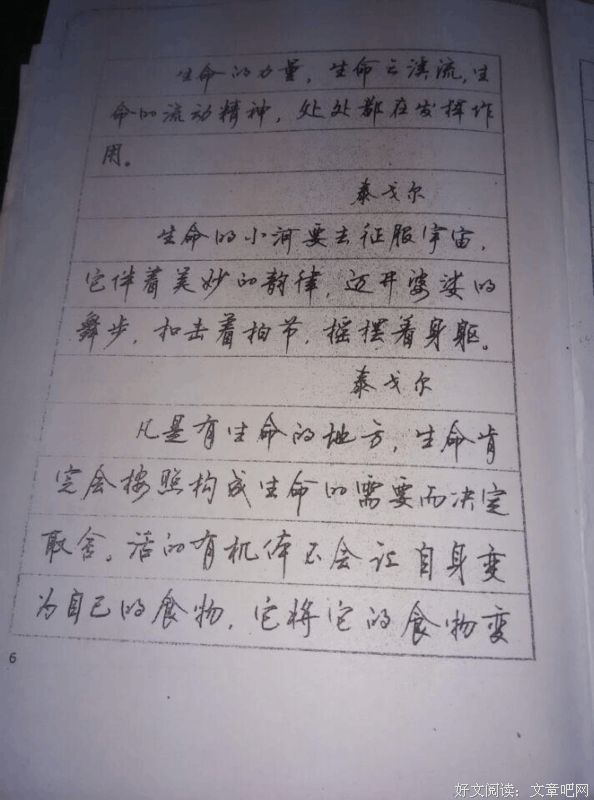 生命的力量，生命之溪流，生
命的流动精神，处处都在发挥作
用。
泰戈尔
生命的小河要去征服宇宙，
它伴着美妙的韵律，迈开婆娑的
舞步，扣击着拍节，摇摆着身躯。
泰戈尔
凡是有生命的地方，生命肯
定会按照构成生命的需要而决定
取舍。活的有机体不会让自身变
为自己的食物，它将它的食物变
6
好文阅读：文章吧网